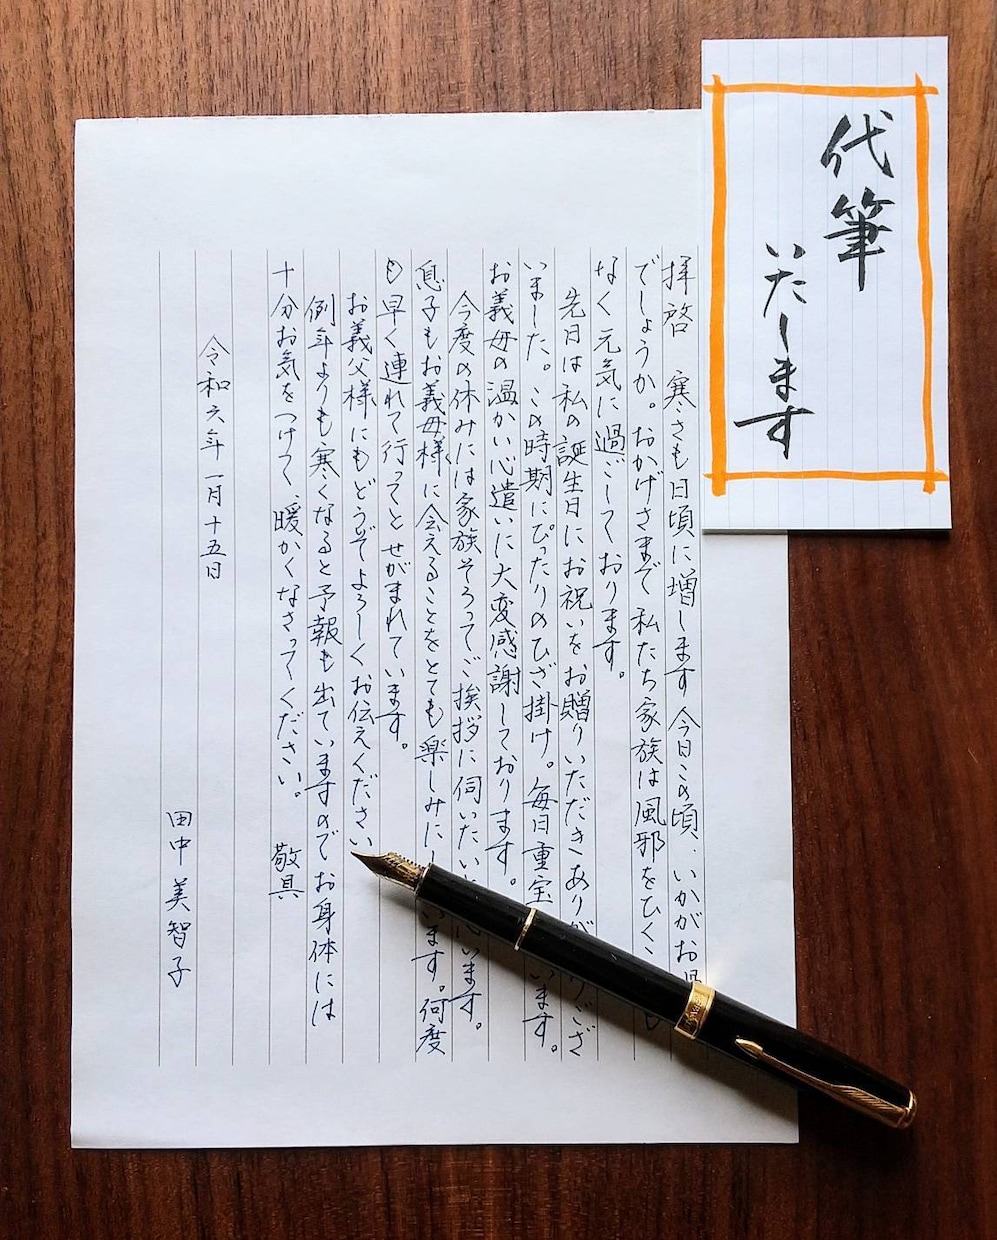 代筆
いたします
拝啓　寒さも日頃に増します今日この頃、いかがお
でしょうか。おかげさまで私たち家族は風邪をひく も
なく元気に過ごしております。
先日は私の誕生日にお祝いをお贈りいただきありが ござ
いました。この時期にぴったりのひざ掛け。毎日重宝 います。
お義母の温かい心遣いに大変感謝しております。
今度の休みには家族そろってご挨拶に伺いたいと思います。
息子もお義母様に会えることをとても楽しみに います。何度
も早く連れて行ってとせがまれています。
お義父様にもどうぞよろしくお伝えください
例年よりも寒くなると予報も出ていますのでお身体には
十分お気をつけて、暖かくなさってください。　敬具
令和六年一月十五日
田中美智子